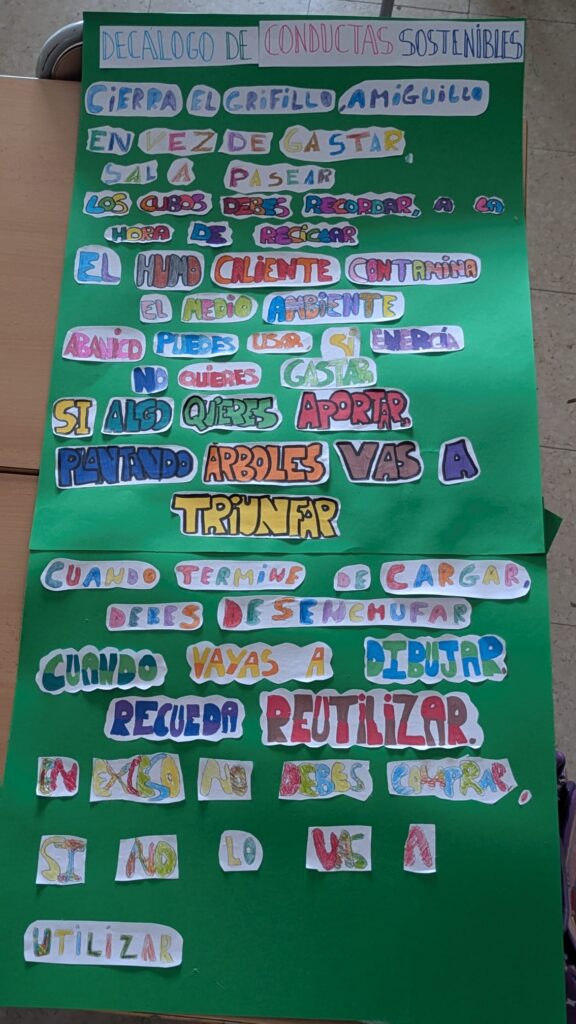 DECALOGO DE CONDUCTAS SOSTENIBLES
CIERRA EL GRIFILLO, AMIGUILLO
EN VEZ DE GASTAR,
SAL A PASEAR
LOS CUBOS DEBES RECORDAR, A LA
HORA DE RECICLAR
EL HUMO CALIENTE CONTAMINA
EL MEDIO AMBIENTE
ABANICO PUEDES USAR SI ENERGÍA
NO QUIERES GASTAR
SI ALGO QUIERES APORTAR,
PLANTANDO ÁRBOLES VAS A
TRIUNFAR
CUANDO TERMINE DE CARGAR,
DEBES DESENCHUFAR
CUANDO VAYAS A DIBUJAR,
RECUEDA REUTILIZAR.
EN EXCESO NO DEBES COMPRAR,
SI NO LO VAS A
UTILIZAR